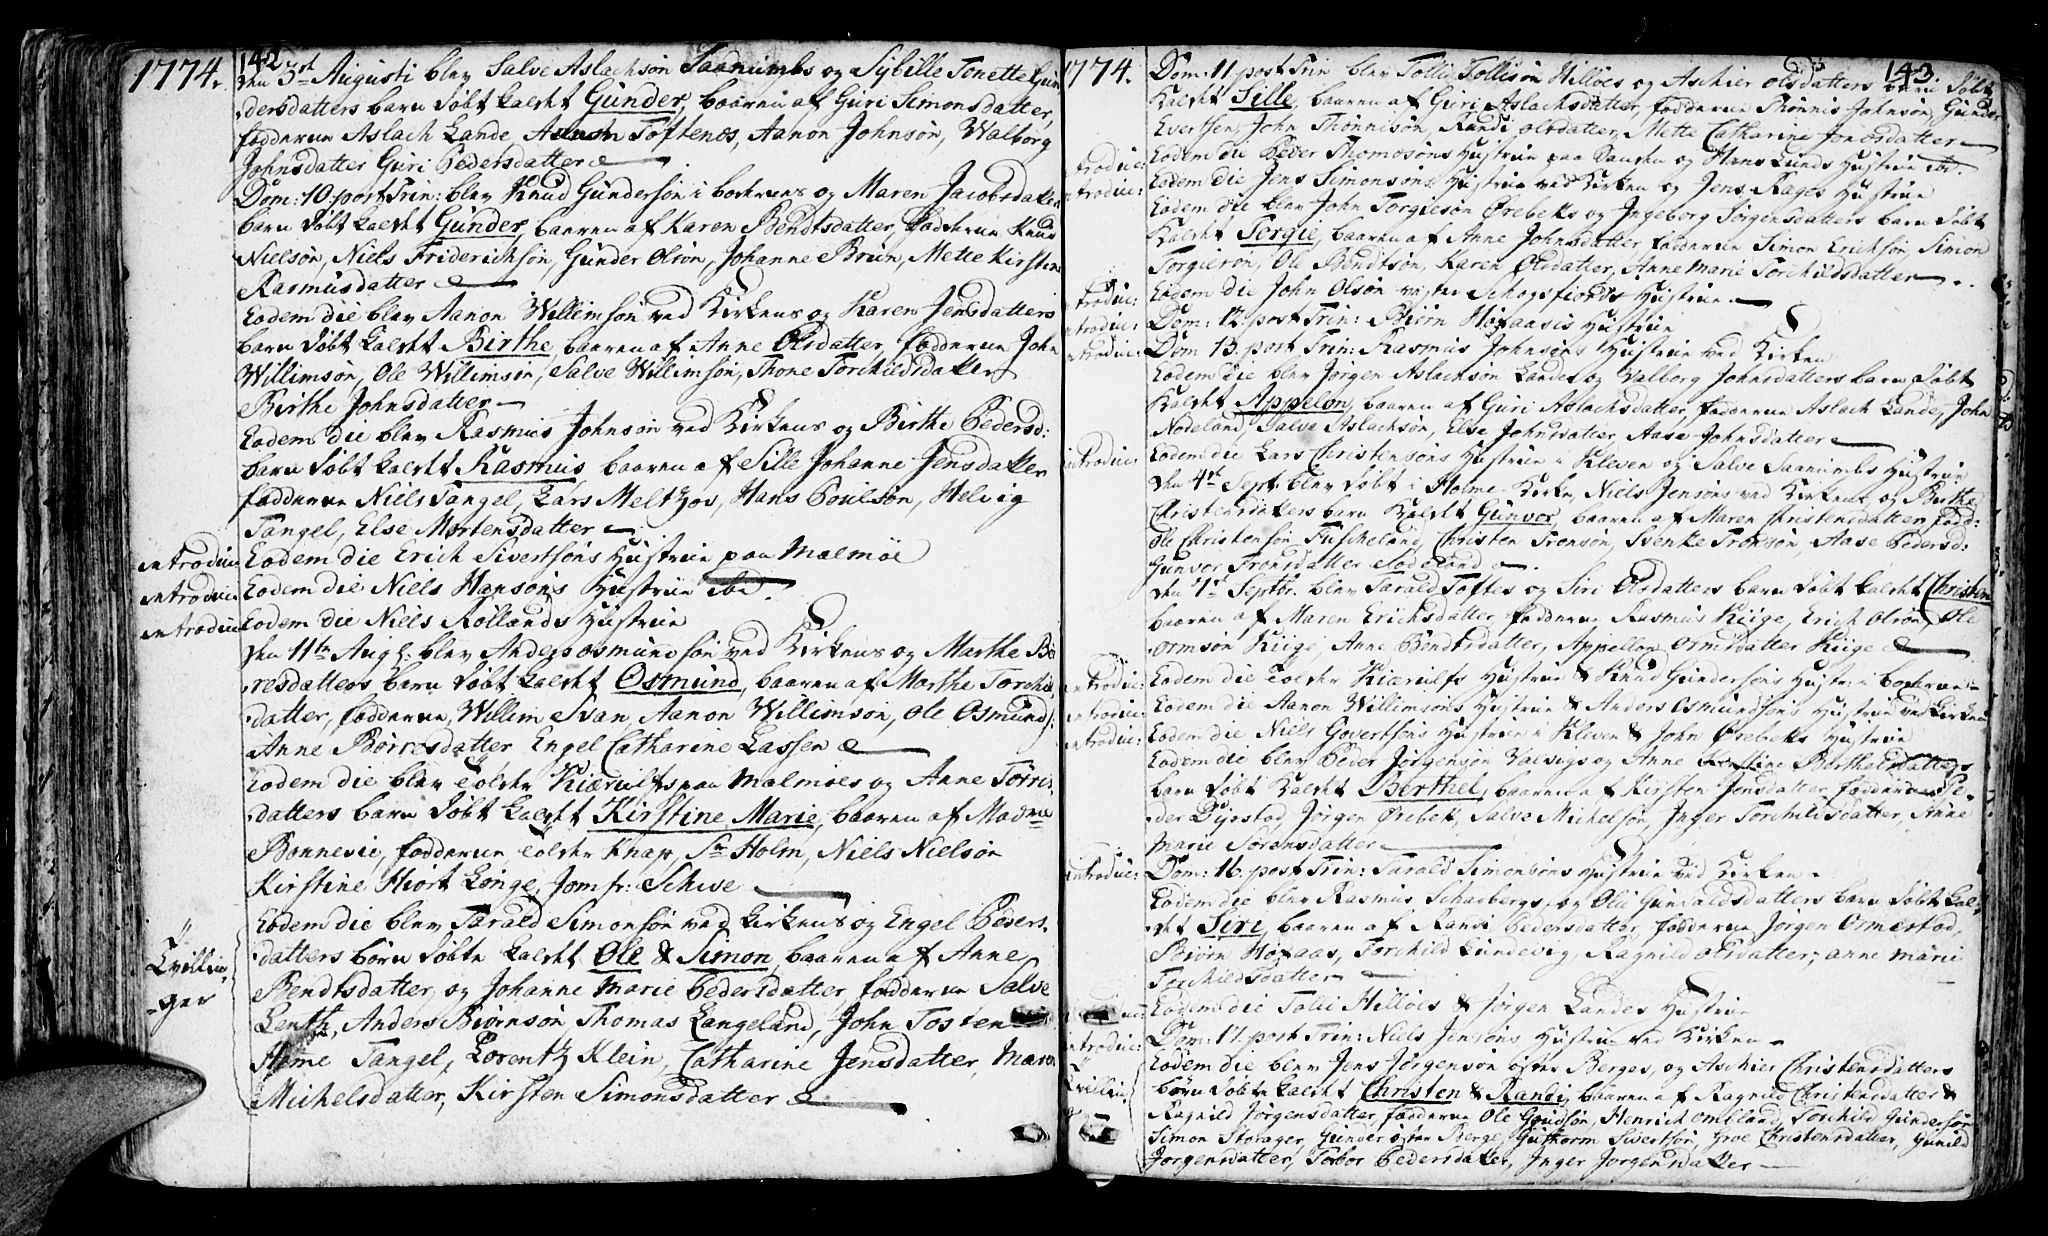 1774.
142
den 3die Augusti blev Salve Aslachsøn Saanumbs og Sybille Tonette Gun
dersdatters barn døbt kaldet Gunder, baaren af Guri Simonsdatter,
fadderne Aslach Lande, Toftenes, Aanon Johnsøn, Walborg
Johnsdatter Guri Pedersdatter
Dom: 10. post Trin: blev Knud Gundersøn i borkens og Maren Jacobsdatters
barn døbt kaldet Gunder, baaren af Karen Bendtsdatter, fadderne Knud
Nielsøn, Niels Friderichsøn, Gunder Olsøn, Johanne Brun, Mette Kirstine
Rasmusdatter
Eodem die blev Aanon Willimsøn ved Kirkens og Karen Jensdatters
barn døbt kaldet Birthe, baaren af Anne Olsdatter, fadderne John
Willimsøn, Ole Willimsøn, Salve Willimsøn, Thone Torchildsdatter
Birthe Johnsdatter
Eodem die blev Rasmus Johnsøn ved Kirkens og Birthe Pedersd:
barn døbt kaldet Rasmus baaren af Sille Johanne Jensdatter
fadderne Niels Tangel, Lars Meltzov, Hans Poulsøn, Helvig
Tangel, Else Mortensdatter
introduc: Eodem die Erich Sivertsøns Hustrue paa Malmøe
introduc: Eodem die Niels Hansøns Hustrue ibd.
introduc: Eodem die Niels Røllands Hustrue
den 11te Aug: blev Anders Osmundsøn ved Kirkens og Marthe Bø
resdatters barn døbt kaldet Osmund, baaren af Marthe Torchils
datter, fadderne, Willim Svan, Aanon Willimsøn, Ole Osmunds:
Anne Børresdatter Engel Catharine Lassen
Eodem die blev Kiærulfs paa Malmøes og Anne Torris
datters barn døbt kaldet Kirstine Marie, baaren af Madme
Bonnevie, fadderne Knap, Sr Holm, Niels Nielsøn
Kirstine Hiort Longe, Jomfr: Schive
Eodem die blev Tarald Simonsøn ved Kirkens og Engel Peders
Tvillin-
ger
datters børn døbte kaldet Ole & Simon, baaren af Anne
Bendtsdatter, og Johanne Marie Pedersdatter, fadderne Salve
Lentz, Anders Biørnsøn, Thomas Langeland, John Tosten
Tangel, Lorentz Klein, Catharine Jensdatter, Maren
Michelsdatter, Kirsten Simonsdatter
1774.
143
Dom: 11. post Trin blev Tollis Tollisøn Hilløes og Aschier Olsdatters barn døbt
kaldet Sille, baaren af Guri Aslachsdatter, fadderne Thønnis Johnsøn, Gunder
Evertsen, John Thønnisøn, Randi Olsdatter, Mette Catharine Jonasdatter
introduc: Eodem die Peder Thomasøns Hustrue paa og Hans Lunds Hustrue ibd.
introduc: Eodem die Jens Simonsøns Hustrue ved Kirken og Jens Rages Hustrue
Eodem die blev John Torgiesøn Ørebeks og Ingeborg Jørgensdatters barn døbt
kaldet Torgie, baaren af Anne Johnsdatter fadderne Simon Erichsøn, Simon
Torgiesøn, Ole Bendtsøn, Karen Olsdatter, Anne Marie Torchildsdatter
introduc: Eodem die John Olsøn vester Schogsfiords Hustrue
introduc: Dom: 12. post Trin: Biørn Høyaases Hustrue
introduc: Dom 13. post Trin: Rasmus Johnsøns Hustrue ved Kirken
Eodem die blev Jørgen Aslachsøn Landes og Valborg Johnsdatters barn døbt
kaldet Appelon, baaren af Guri Aslachsdatter, fadderne Aslach Lande, John
Nodeland, Salve Aslachsøn, Else Johnsdatter, Aase Johnsdatter
introduc: Eodem die Lars Christensøns Hustrue i Kleven og Salve Saanumbs Hustrue
den 4de Sept: blev døbt i Holme Kirke, Niels Jensøns ved Kirkens og Birthe
Christensdatters barn kaldet Gunvor, baaren af Maren Christensdatter, fadd:
Ole Christensøn Fuscheland, Christen Tronsøn, Svenke Tronsøn, Aase Pedersd:
Gunvor Tronsdatter Sodeland
den 7de Septbr. blev Tarald Toftes og Siri Olsdatters barn døbt kaldet Christen
baaren af Maren Erichsdatter, fadderne Rasmus Kiige, Erich Olsøn, Ole
Ormsøn Kiige, Anne Bendtsdatter, Appellon Ormsdatter Kiige
introduc: Eodem die Kiærulfs Hustrue & Knud Gundersøns Hustr: i
introduc: Eodem die Aanon Willimsøns Hustrue & Anders Osmundsøns Hustrue ved Kirken
introduc: Eodem die Niels Govertsøns Hustrue i Kleven & John Ørebeks Hustrue
Eodem die blev Peder Jørgensøn Valvigs og Anne Barthelsdatters
barn døbt kaldet Berthel, baaren af Kirsten Jensdatter, fadderne Pe-
der Dyrstad, Jørgen Ørebek, Salve Michelsøn, Inger Torchildsdatter, Anne
Marie Sørensdatter
introduc: Dom: 16. post Trin: Tarald Simonsøns Hustrue ved Kirken
Eodem die blev Rasmus Schaebergs og Oli Gunvaldsdatters barn døbt kal-
det Siri, baaren af Randi Pedersdatter, fadderne Jørgen Ormestad,
Biørn Høyaas, Torchild Lundevig, Ragnild Olsdatter, Anne Marie
Torchildsdatter
Eodem die Tolli Hilløes & Jørgen Landes Hustrue
introduc: Dom: 17. post Trin: Niels Jensøns Hustrue ved Kirken
Eodem die blev Jens Jørgensøn øster Berges, og Aschier Christensdatters
Tvillin
børn døbte kaldet Christen & Randi, baaren af Ragnild Christensdatter &
Ragnild Jørgensdatter, fadderne Ole Gundsøn, Henrich Ombland, Torchild Gundersøn
Simon Storager, Gunder øster Berge, Guthorm Sivertsøn, Groe Christensdatter, Gunild
Jorgensdatter, Torbor Pedersdatter, Inger Jorgensdatter